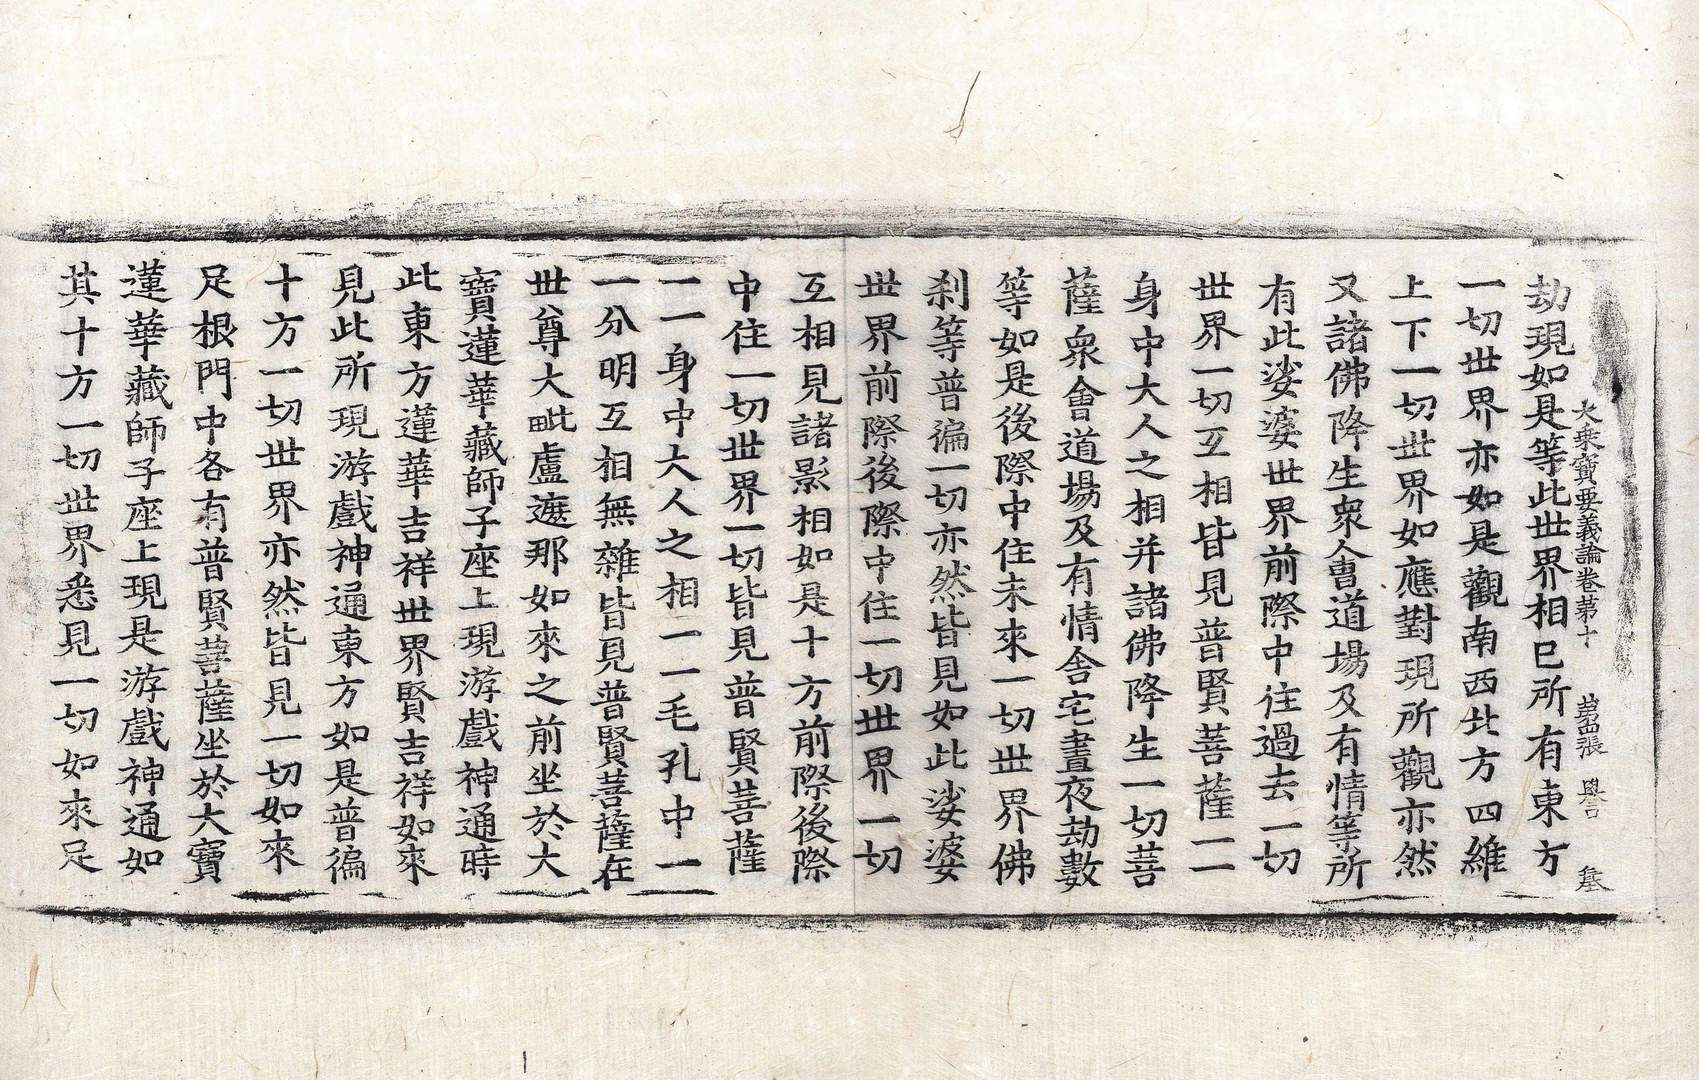 大乘寶要義論卷第十 第四張 譽
劫現如是等此世界相已所有東方
一切世界亦如是觀南西北方四維
上下一切世界如應對現所觀亦然
又諸佛降生衆會道場及有情等所
有此娑婆世界前際中住過去一切
世界一切互相皆見普賢菩薩一一
身中大人之相并諸佛降生一切菩
薩衆會道場及有情舍宅晝夜劫數
等如是後際中住未來一切世界佛
刹等普徧一切亦然皆見如此娑婆
世界前際後際中住一切世界一切
互相見諸影相如是十方前際後際
中住一切世界一切皆見普賢菩薩
一一身中大人之相一一毛孔中一
一分明互相無雜皆見普賢菩薩在
世尊大毗盧遮那如來之前坐於大
寶蓮華藏師子座上現游戲神通時
此東方蓮華吉祥世界賢吉祥如來
見此所現游戲神通東方如是普徧
十方一切世界亦然皆見一切如來
足根門中各有普賢菩薩坐於大寶
蓮華藏師子座上現是游戲神通如
其十方一切世界悉見一切如來足